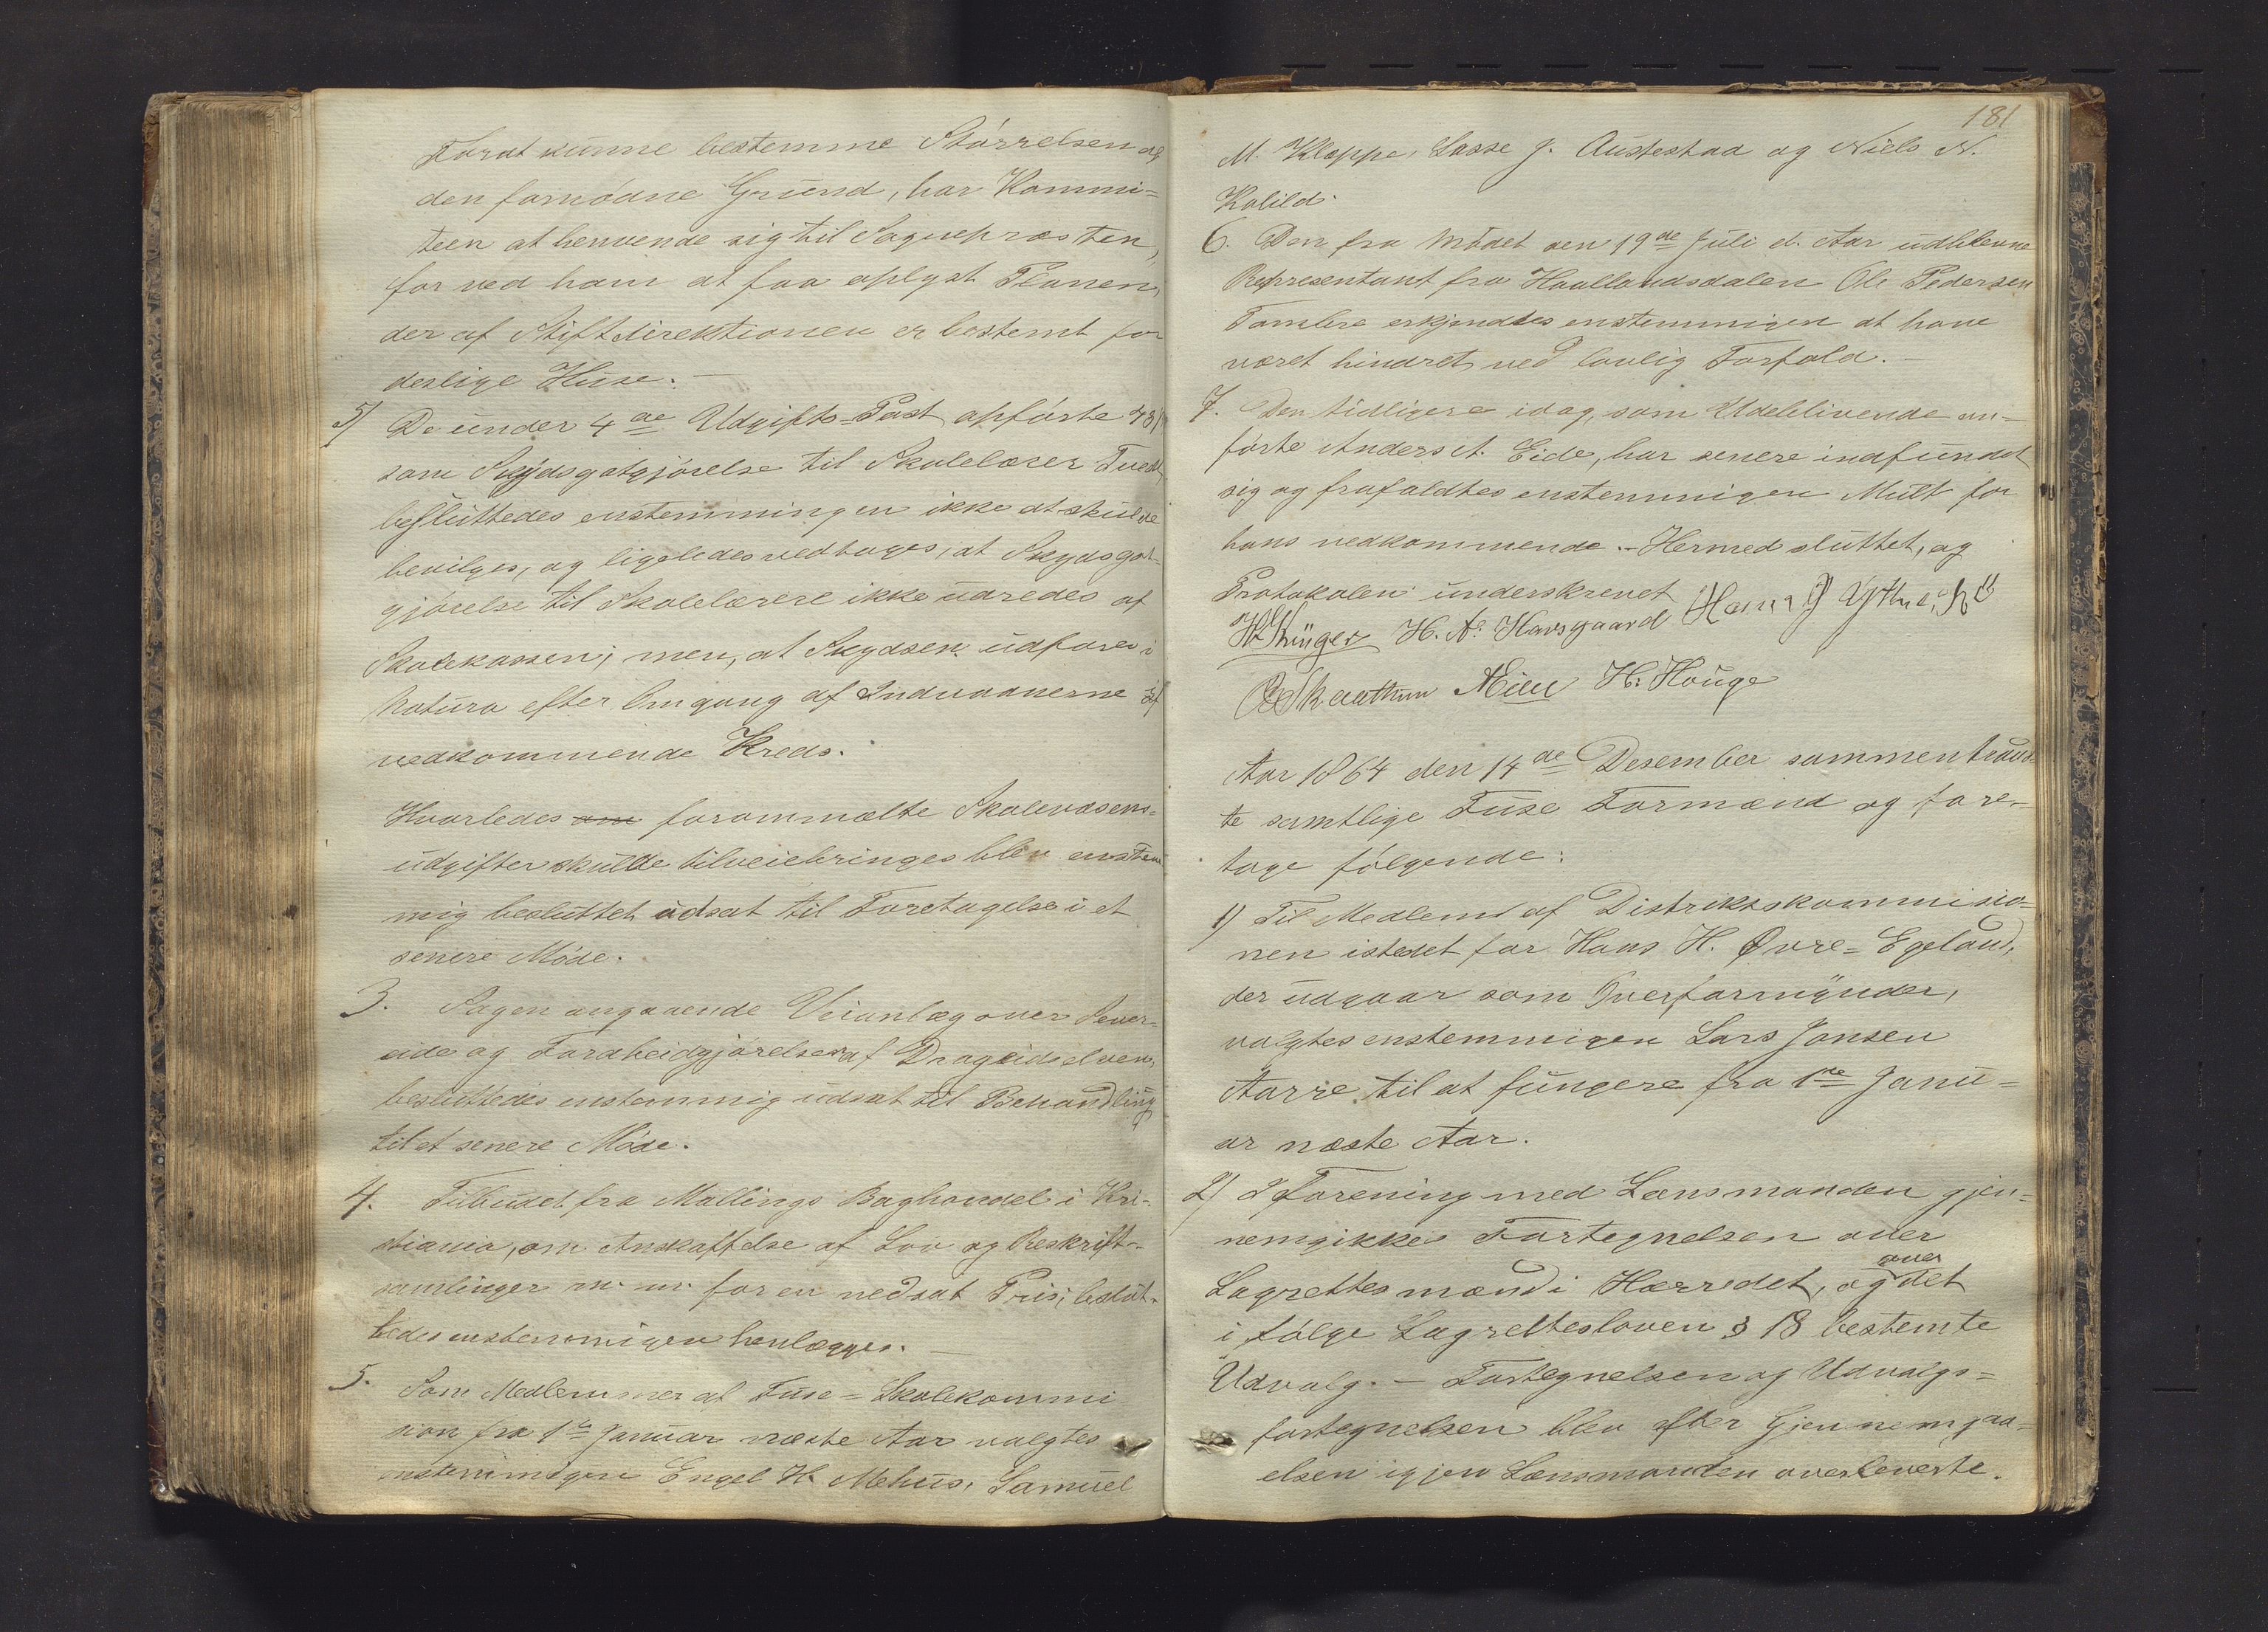 Forat kunne bestemme Størrelsen af
den fornødne Grund, har Kommi=
teen at henvende sig til Sognepræsten,
for ved ham at faa oplyst Planen,
der af Stiftdirektionen er bestemt for
deslige Huse. —
5) De under 4de Udgifts-Post opførte
som Skydsgotgjørelse til Skolelærer Tvedt,
besluttedes enstemmingen ikke at skulde
bevilges, og ligeledes vedtoges, at Skydsgot-
gjørelse til Skolelærere ikke udredes af
Skolekassen; men, at Skydsen udføres i
Natura efter Omgang af Indvaanerne af
vedkommende Kreds.
Hvorledes om forommælte Skolevæsens=
udgifter skulde tilveiebringes blev enstem
mig besluttet udsat til Foretagelse i et
senere Møde.
3. Sagen angaaende Veianlæg over Sever=
eide og Farabeidgjørelsen af Drageidselven,
besluttedes enstemmig udsat til Behandling
til et senere Møde.
4. Tilbudet fra Mallings Boghandel i Kri-
stiania, om Anskaffelse af Lov og Reskript-
samlinger m. m. for en nedsat Pris, beslut-
tedes enstemmigen henlægges. —
5. Som Medlemmer af Fuse = Skolekommi
sion fra 1ste Januar næste Aar valgtes
enstemmigen Engel H. Mehus, Samuel
181
M. Kloppe, Lasse J. Austestad og Niels N.
Kolild.
6. Den fra Mødet den 19de Juli d. Aar udeblevne
Repræsentant fra Haallandsdalen Ole Pedersen
Tombre erkjendtes enstemmigen at have
været hindret ved lovlig Forfald. —
7. Den tidligere idag, som Udeblivende an-
førte Anders A. Eide, har senere indfundet
sig og frafaldtes enstemmigen Mult for
hans vedkommende. — Hermed sluttet, og
Protokolen underskrevet
H. Krüger H. A. Havsgaard
O. Skaathun AEide H. Houge
Aar 1864 den 14de Desember sammentraad-
te samtlige Fuse Formænd og fore-
toge følgende:
1) Til Medlem af Distriktskommisio=
nen istedet for Hans H. Øvre-Egeland,
der udgaar som Overformynder,
valgtes enstemmigen Lars Jonsen
Aarre til at fungere fra 1ste Janu=
ar næste Aar.
2) I Forening med Lensmanden gjen=
nemgikkes Fortegnelsen over
Lagrettesmænd i Hærredet, og over det
i følge Lagrettesloven § 18 bestemte
Udvalg. — Fortegnelsen og Udvalgs=
fortegnelsen blev efter Gjennemgaa-
elsen igjen Lensmanden overleverte.